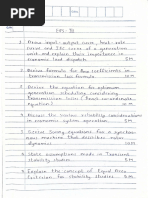 CAS - III
1 Draw input-output curve, heat-rate
curve and IFC curve of a generation
unit and explain their importance in
economic load dispatch. 8M
2 Derive formula for Bmn coefficients in
transmission loss formula. 8M
3 Derive equation for optimum
generation scheduling considering
transmission loss (Exact co-ordinate
equation) 8M
4 Discuss the reactor reliability considerations
in economic system operation 8M
5 Derive Swing equation for a synchronous
machine that describes rotor
dynamics 8M
6 State assumptions made in Transient
Stability studies 5M
7 Explain the concept of Equal Area
Criterion for stability studies 5M